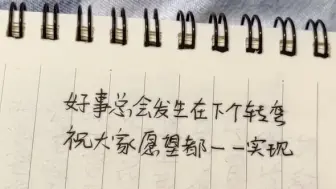 好事总会发生在下个转弯
祝大家愿望都一一实现